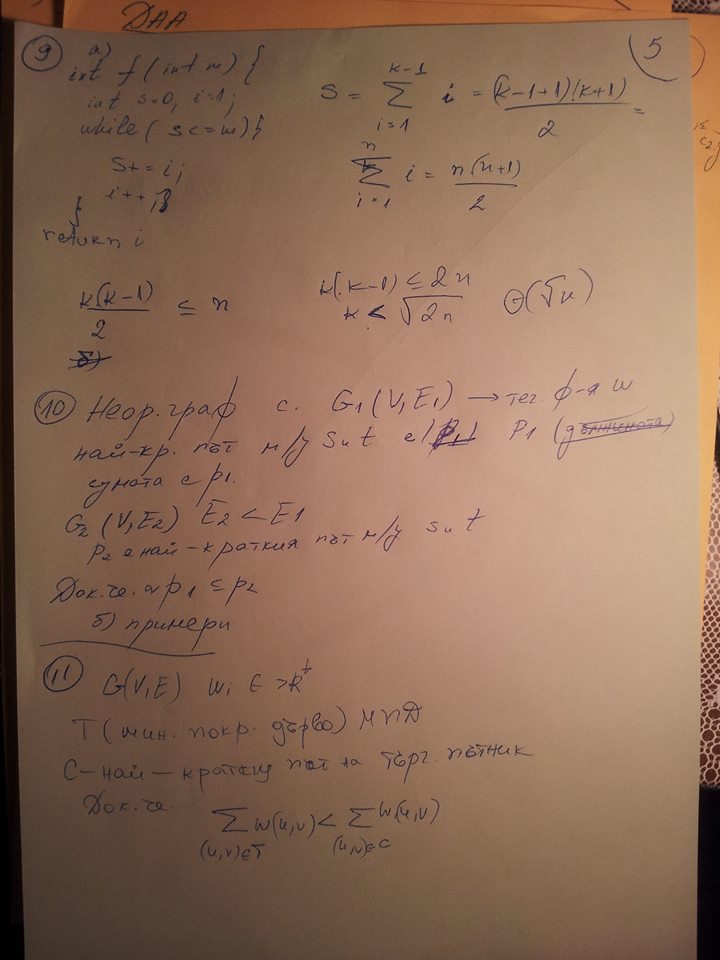 ДАА
5
9 а)
int f(int n) {
int s=0, i=1;
while (s<=n) {
s+=i;
i++;}
}
return i
S = \sum_{i=1}^{k-1} i = \frac{(k-1+1)(k+1)}{2} =
\sum_{i=1}^{n} i = \frac{n(n+1)}{2}
\frac{k(k-1)}{2} ≤ n
k(k-1) ≤ 2n
k < \sqrt{2n} Θ(√n)
б)
10 Неор. граф с. G1(V,E1) → тег ф-я w
най-кр. път м/у s и t е P1
сумата е p1.
G2(V,E2) E2 < E1
P2 е най-краткия път м/у s и t
Док. че а) p1 ≤ p2
б) примери
11 G(V,E) w: E→R+
T (мин. покр. дърво) МПД
C-най-краткия път на търг. пътник
Док. че
\sum_{(u,v)∈T} w(u,v) < \sum_{(u,v)∈C} w(u,v)